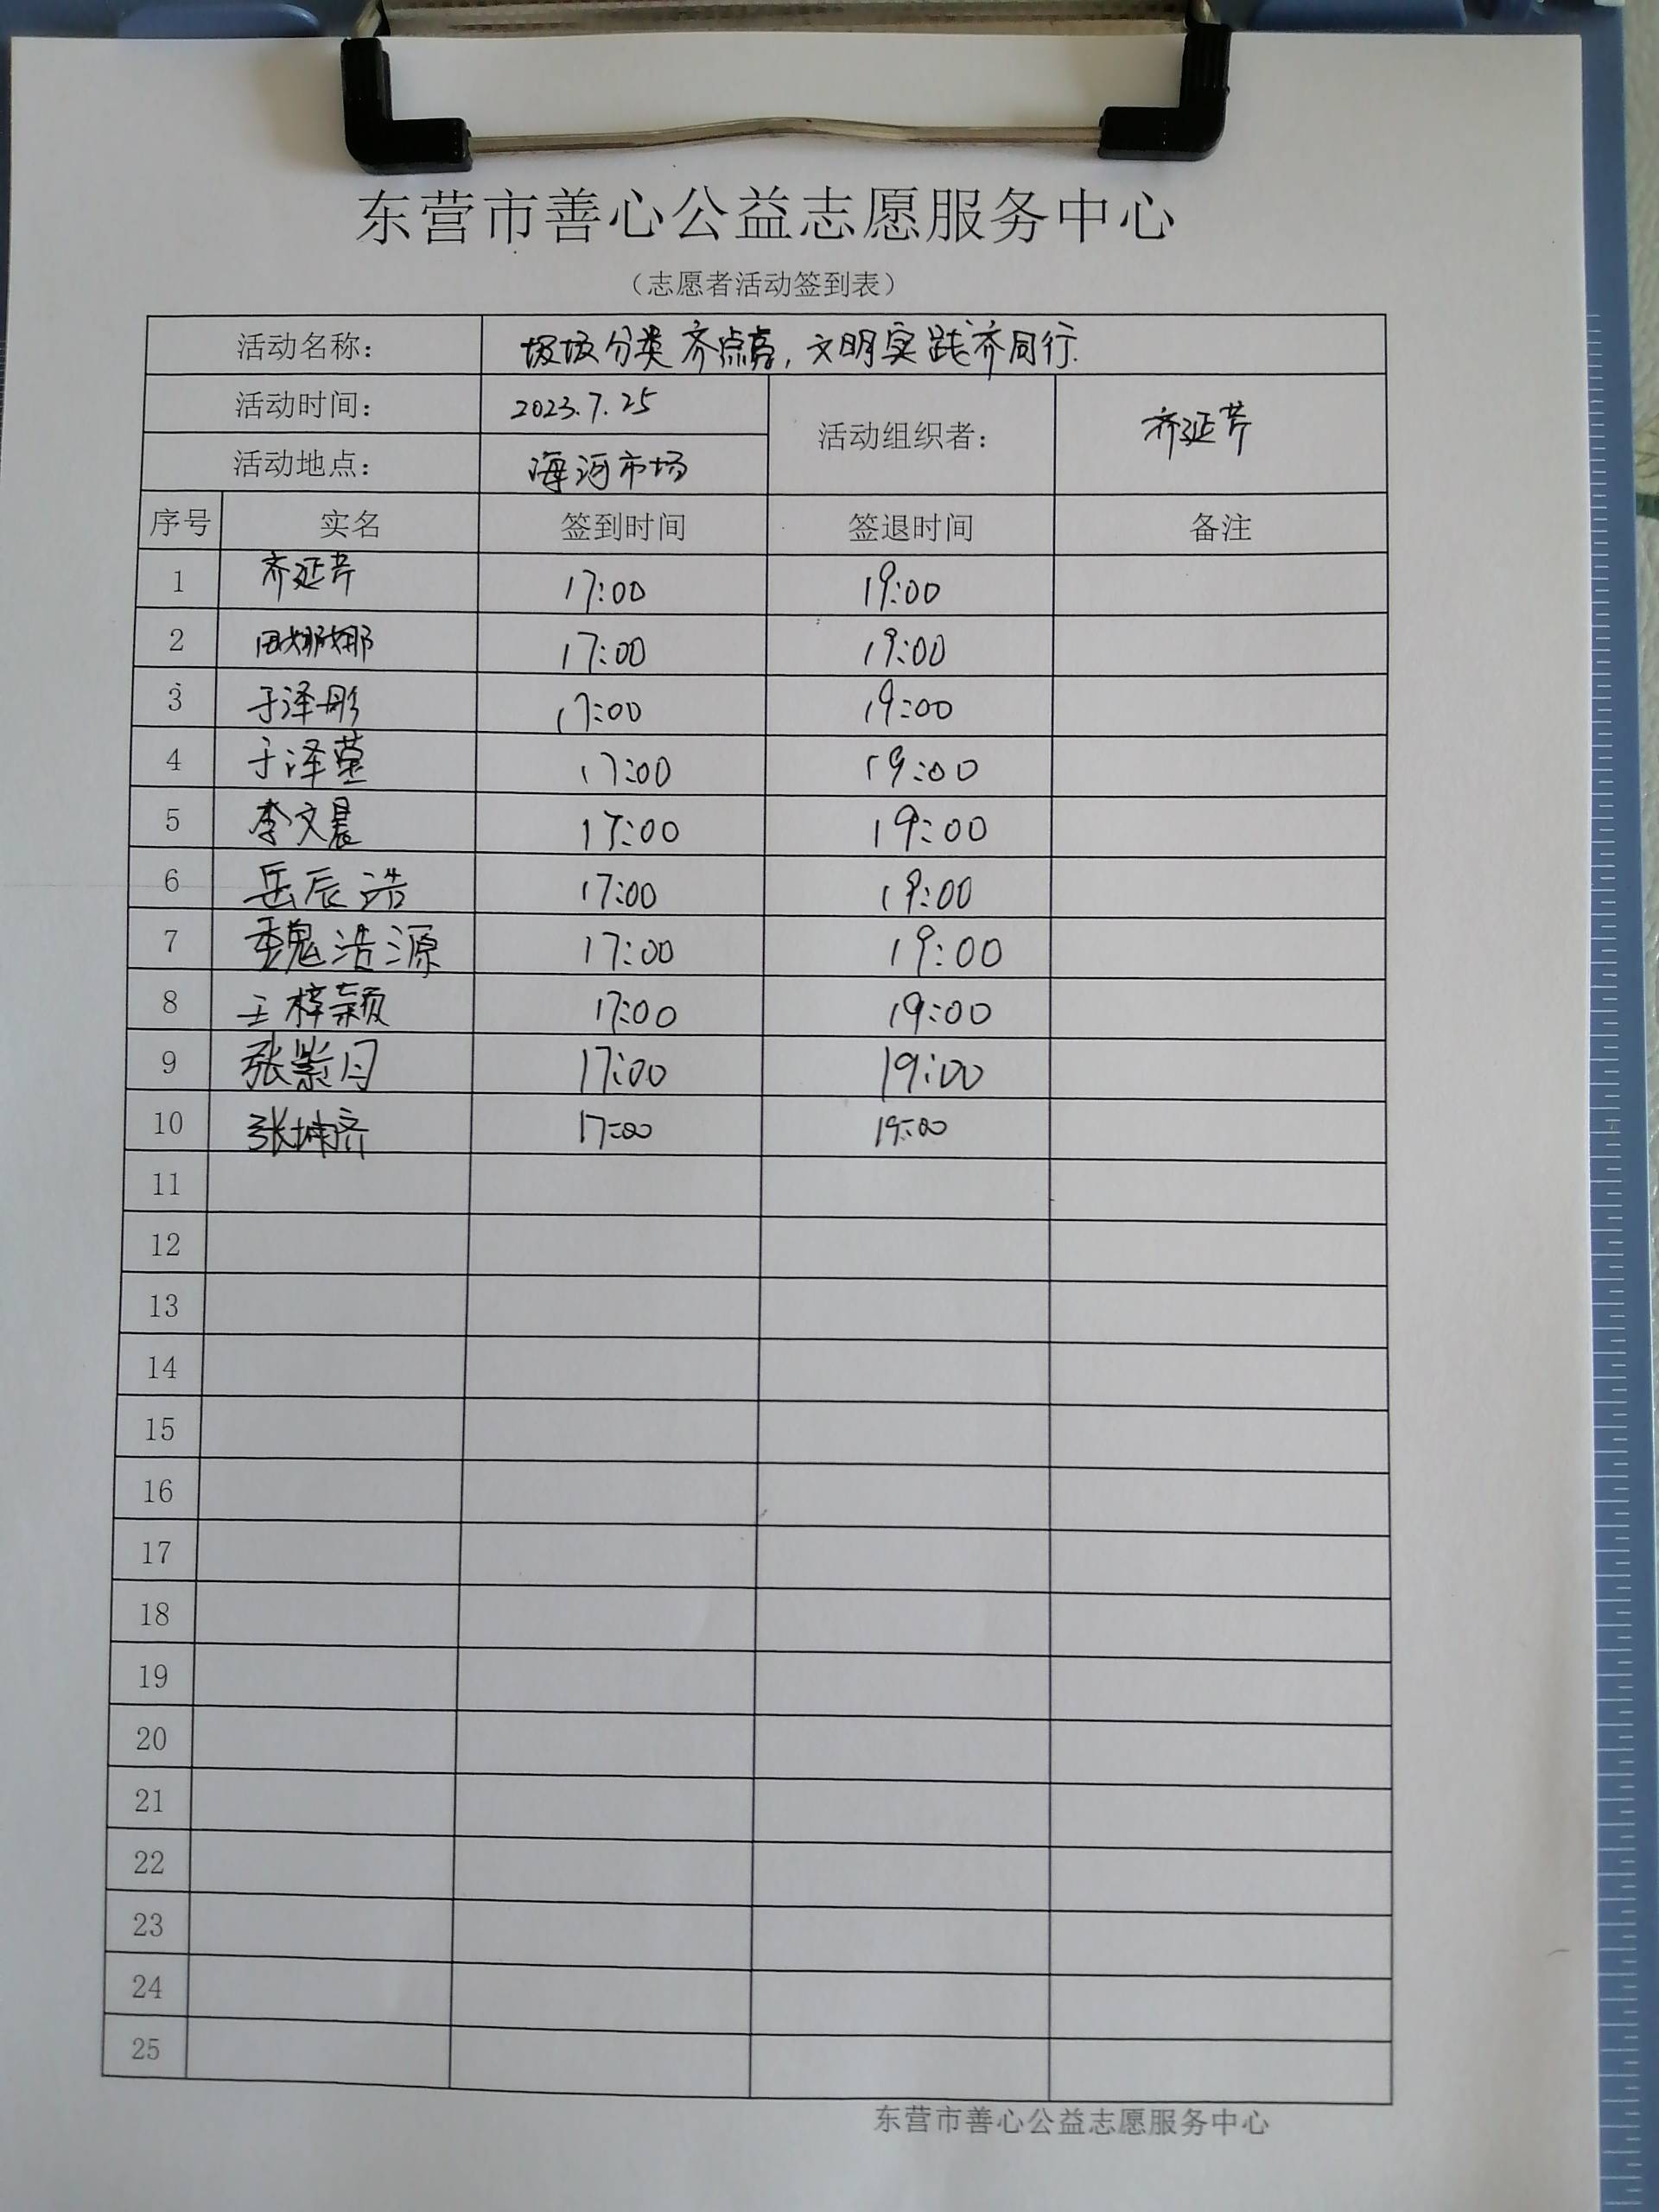 东营市善心公益志愿服务中心
（志愿者活动签到表）
活动名称： 垃圾分类齐点亮，文明实践齐同行.
活动时间： 2023.7.25 活动组织者： 齐延芹
活动地点： 海河市场
序号 实名 签到时间 签退时间 备注
1 齐延芹 17:00 19:00
2 田娜娜 17:00 19:00
3 于泽彤 17:00 19:00
4 于泽莹 17:00 19:00
5 李文晨 17:00 19:00
6 岳辰浩 17:00 19:00
7 魏浩源 17:00 19:00
8 王梓颖 17:00 19:00
9 张紫月 17:00 19:00
10 张坤济 17:00 19:00
11
12
13
14
15
16
17
18
19
20
21
22
23
24
25
东营市善心公益志愿服务中心